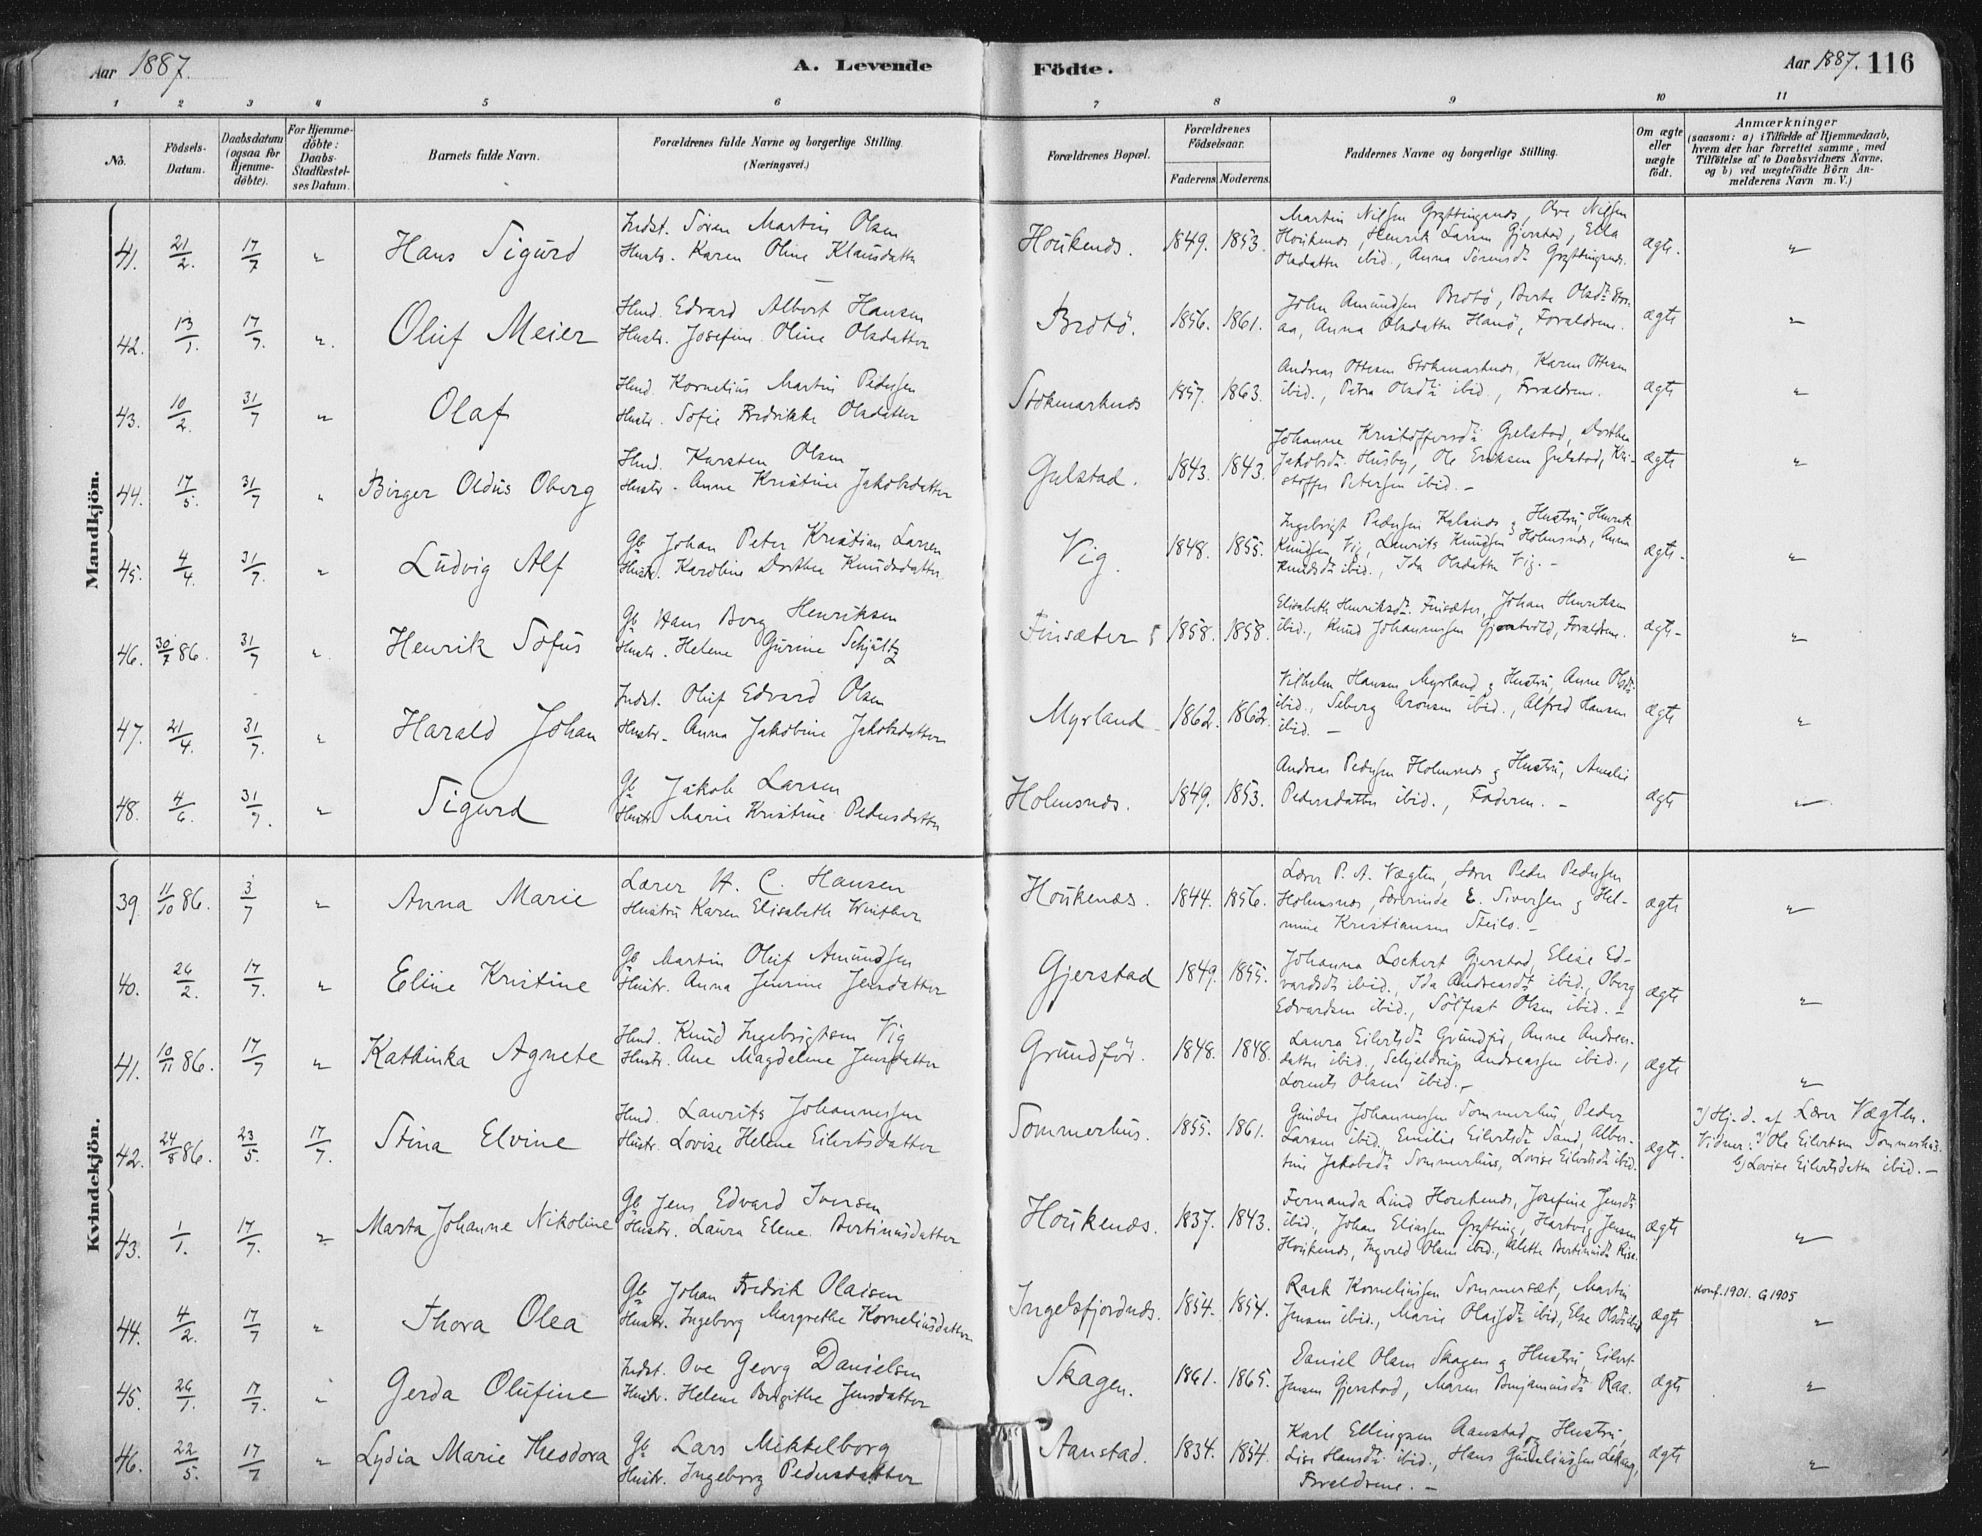 Aar 1887. A. Levende Födte. Aar 1887. 116
1 2 3 4 5 6 7 8 9 10 11
No. Födsels-Datum. Daabsdatum (ogsaa for Hjemme-döbte). For Hjemme-döbte: Daabs-Stadfæstel-ses Datum. Barnets fulde Navn. Forældrenes fulde Navne og borgerlige Stilling. (Næringsvei.) Forældrenes Bopæl. Forældrenes Födselsaar. Faderens Moderens. Faddernes Navne og borgerlige Stilling. Om ægte eller uægte födt. Anmærkninger
(saasom: a) i Tilfælde af Hjemmedaab, hvem der har forrettet samme, med Tilföielse af to Daabsvidners Navne, og b) ved uægtefödte Börn Anmelderens Navn m. V.)
Mandkjön.
41. 21/2. 17/7 " Hans Sigurd Indst. Sören Martin Olsen
Hustr. Karen Oline Klausdatter
Houkenæs. 1849. 1853. Martin Nilsen Grøttingnæs, Ove Nilsen
Houkenæs, Henrik Larsen Gjerstad, Ella
Olsdatter ibid., Anna Sörensdr Grøttingnæs. ægte. "
42. 13/1. 17/7. " Oluf Meier Hmd. Edvard Albert Hansen
Hustr. Josefine Oline Olsdatter
Brotö. 1856. 1861. John Amundsen Brotö, Berte Olsdr
Anna Olsdatter Hanö, Forældrene. ægte "
43. 10/2. 31/7 " Olaf Hmd. Kornelius Martin Pedersen
Hustr. Sofie Fredrikke Olsdatter
Stokmarknæs 1857. 1863. Andreas Ottesen Stokmarknæs, Karen Ottesen
ibid., Petra Olsdr ibid., Forældrene. ægte "
44. 17/5. 31/7 " Birger Oldus Oberg Hmd. Karsten Olsen
Hustr. Anne Kristine Jakobsdatter
Gulstad. 1843. 1843. Johanne Kristoffersdr Gulstad, Dorthea
Jakobsdr Husby, Ole Eriksen Gulstad, Kri-
stoffer Petersen ibid. ægte "
45. 4/4. 31/7. " Ludvig Alf Gb. Johan Peter Kristian Larsen
Hustr. Karoline Dorthea Knudsdatter
Vig. 1848. 1855. Ingebrigt Pedersen Kalsnæs & Hustru, Henrik
Knudsen Vig, Laurits Knudsen Holmsnæs, Anna
Knudsdr ibid., Ida Olsdatter Vig. ægte. "
46. 30/7 86. 31/7 " Henrik Sofus Gb. Hans Berg Henriksen
Hustr. Helene Gurine Schjultz
Finsæter 1858. 1858. Elisabeth Henriksdr. Finsæter, Johan Henriksen
ibid., Knud Johannessen Forældrene. ægte. "
47. 21/4. 31/7. " Harald Johan Indst. Oluf Edvard Olsen
Hustr. Anna Jakobine Jakobsdatter
Myrland 1862. 1862. Vilhelm Hansen Myrland & Hustru, Anne Olsdr
ibid., Seberg Aronsen ibid., Alfred Hansen
ibid. ægte "
48. 4/6. 31/7. " Sigurd Gb. Jakob Larsen
Hustr Marie Kristine Pedersdatter
Holmsnæs. 1849. 1853. Andreas Pedersen Holmsnæs & Hustru, Amalie
Pedersdatter ibid., Faderen. ægte "
Kvindekjön.
39. 11/10 86. 3/7 " Anna Marie Lærer H. C. Hansen
Hustru Karen Elisabeth Winther
Houkenæs. 1844. 1856. Lærer P. A. Vægten, Peder Pedersen
Holmsnæs, Severinde E. Siversen & Hel-
mine Kristiansen Steilo. ægte "
40. 26/2. 17/7. " Eline Kristine Gb. Martin Oluf Amundsen
Hustr. Anna Jensine Jensdatter
Gjerstad 1849. 1855. Johanna Lockert Gjerstad, Elise Ed-
vardsdr ibid., Ida Andreasdr ibid., Oberg
Edvardsen ibid., Solfest Olsen ibid. ægte "
41. 10/11 86. 17/7 " Kathinka Agnete Hmd. Knud Ingebrigtsen Vig
Hustr. Ane Magdalene Jensdatter
Grundför. 1848. 1848. Laura Eilertsdr Grundför, Anne Andreas-
datter ibid., Schjeldrup Andreassen ibid.,
Lornits Olsen ibid. ægte "
42. 24/8 86. 23/5. 17/7. Stina Elvine Hmd. Laurits Johannessen
Hustr. Lovise Helene Eilertsdatter
Sommerhus. 1855. 1861. Gunder Johannessen Sommerhus, Peder
Larsen ibid. Emilie Eilertsdr Sand, Alber-
tine Jakobsdr Sommerhus, Lovise Eilertsdr ibid. ægte. Hj. d. af Lærer Vægten.
Vidner: a) Ole Eilertsen Sommerhus.
b) Lovise Eilertsdatter ibid.
43. 1/1. 17/7. " Marta Johanne Nikoline Gb. Jens Edvard Iversen
Hustr. Laura Elene Bertinusdatter
Houkenæs. 1837. 1843. Fernanda Lind Houkenæs, Josefine Jensdr
ibid., Johan Eliassen Grøtting, Hartvig Jensen
Houkenæs, Ingvald Olsen ibid., Alette Bertinusdr Rise. ægte "
44. 4/2. 17/7 " Thora Olea Gb. Johan Fredrik Olaisen
Hustr. Ingeborg Margrethe Korneliusdatter
Ingelsfjordnæs. 1854. 1854. Rask Korneliussen Sommersæt, Martin
Jensen ibid., Marie Olaisdr ibid, Else Olsdr ibid ægte Konf. 1901. G 1905 "
45. 26/1. 17/7. " Gerda Olufine Indst. Ove Georg Danielsen
Hustr. Helene Birgithe Jensdatter
Skagen. 1861. 1865. Daniel Olsen Skagen & Hustru, Eilert
Jensen Gjerstad, Maren Benjaminsdr Raa. ægte "
46. 22/5. 17/7 " Lydia Marie Theodora Gb. Lars Mikkelborg
Hustr. Ingeborg Pedersdatter
Aanstad. 1834. 1854. Karl Ellingsen Aanstad & Hustru,
Lise Hansdr ibid., Hans Gunleiussen Lekang,
Forældrene. ægte "